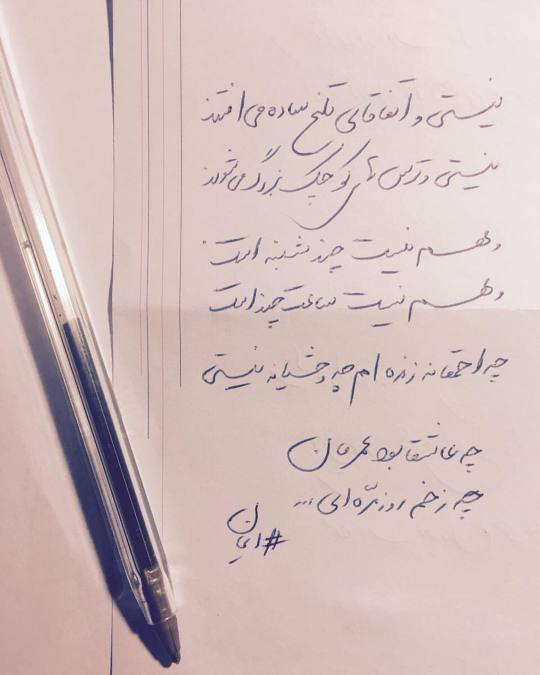 نیستی و اتفاقاتی تلخ ساده می افتند
نیستی و ترس های کوچک بزرگ می شوند
و مهم نیست چند شنبه است
و مهم نیست ساعت چند است
چه احمقانه زنده ام چه وحشیانه نیستی
چه عاشقا بود عمرمان
چه زخم روزمرّه ای ...
#ایمان